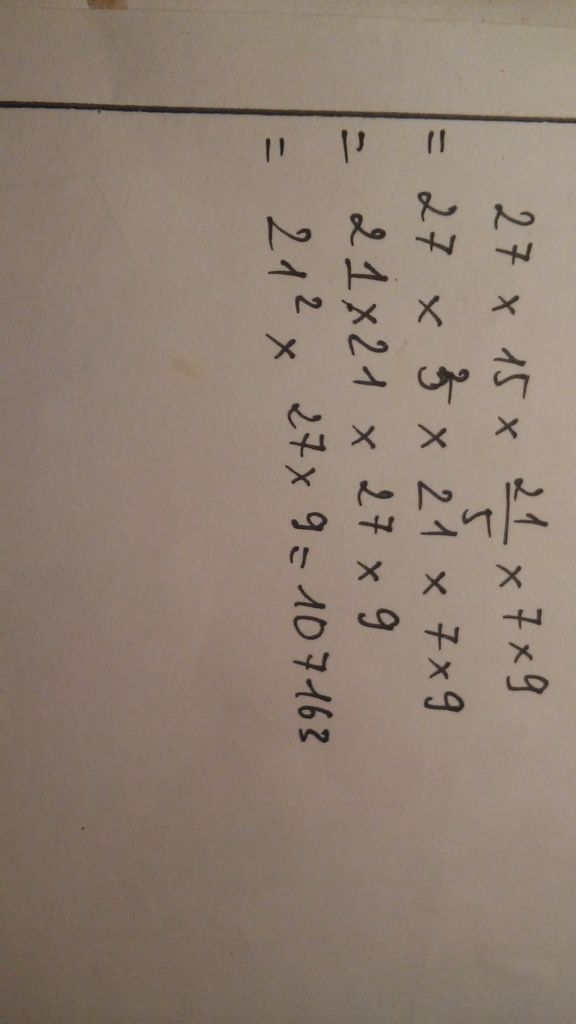 27 × 15 × 21/5 × 7 × 9
= 27 × 3 × 21 × 7 × 9
= 21 × 21 × 27 × 9
= 21² × 27 × 9 = 107163